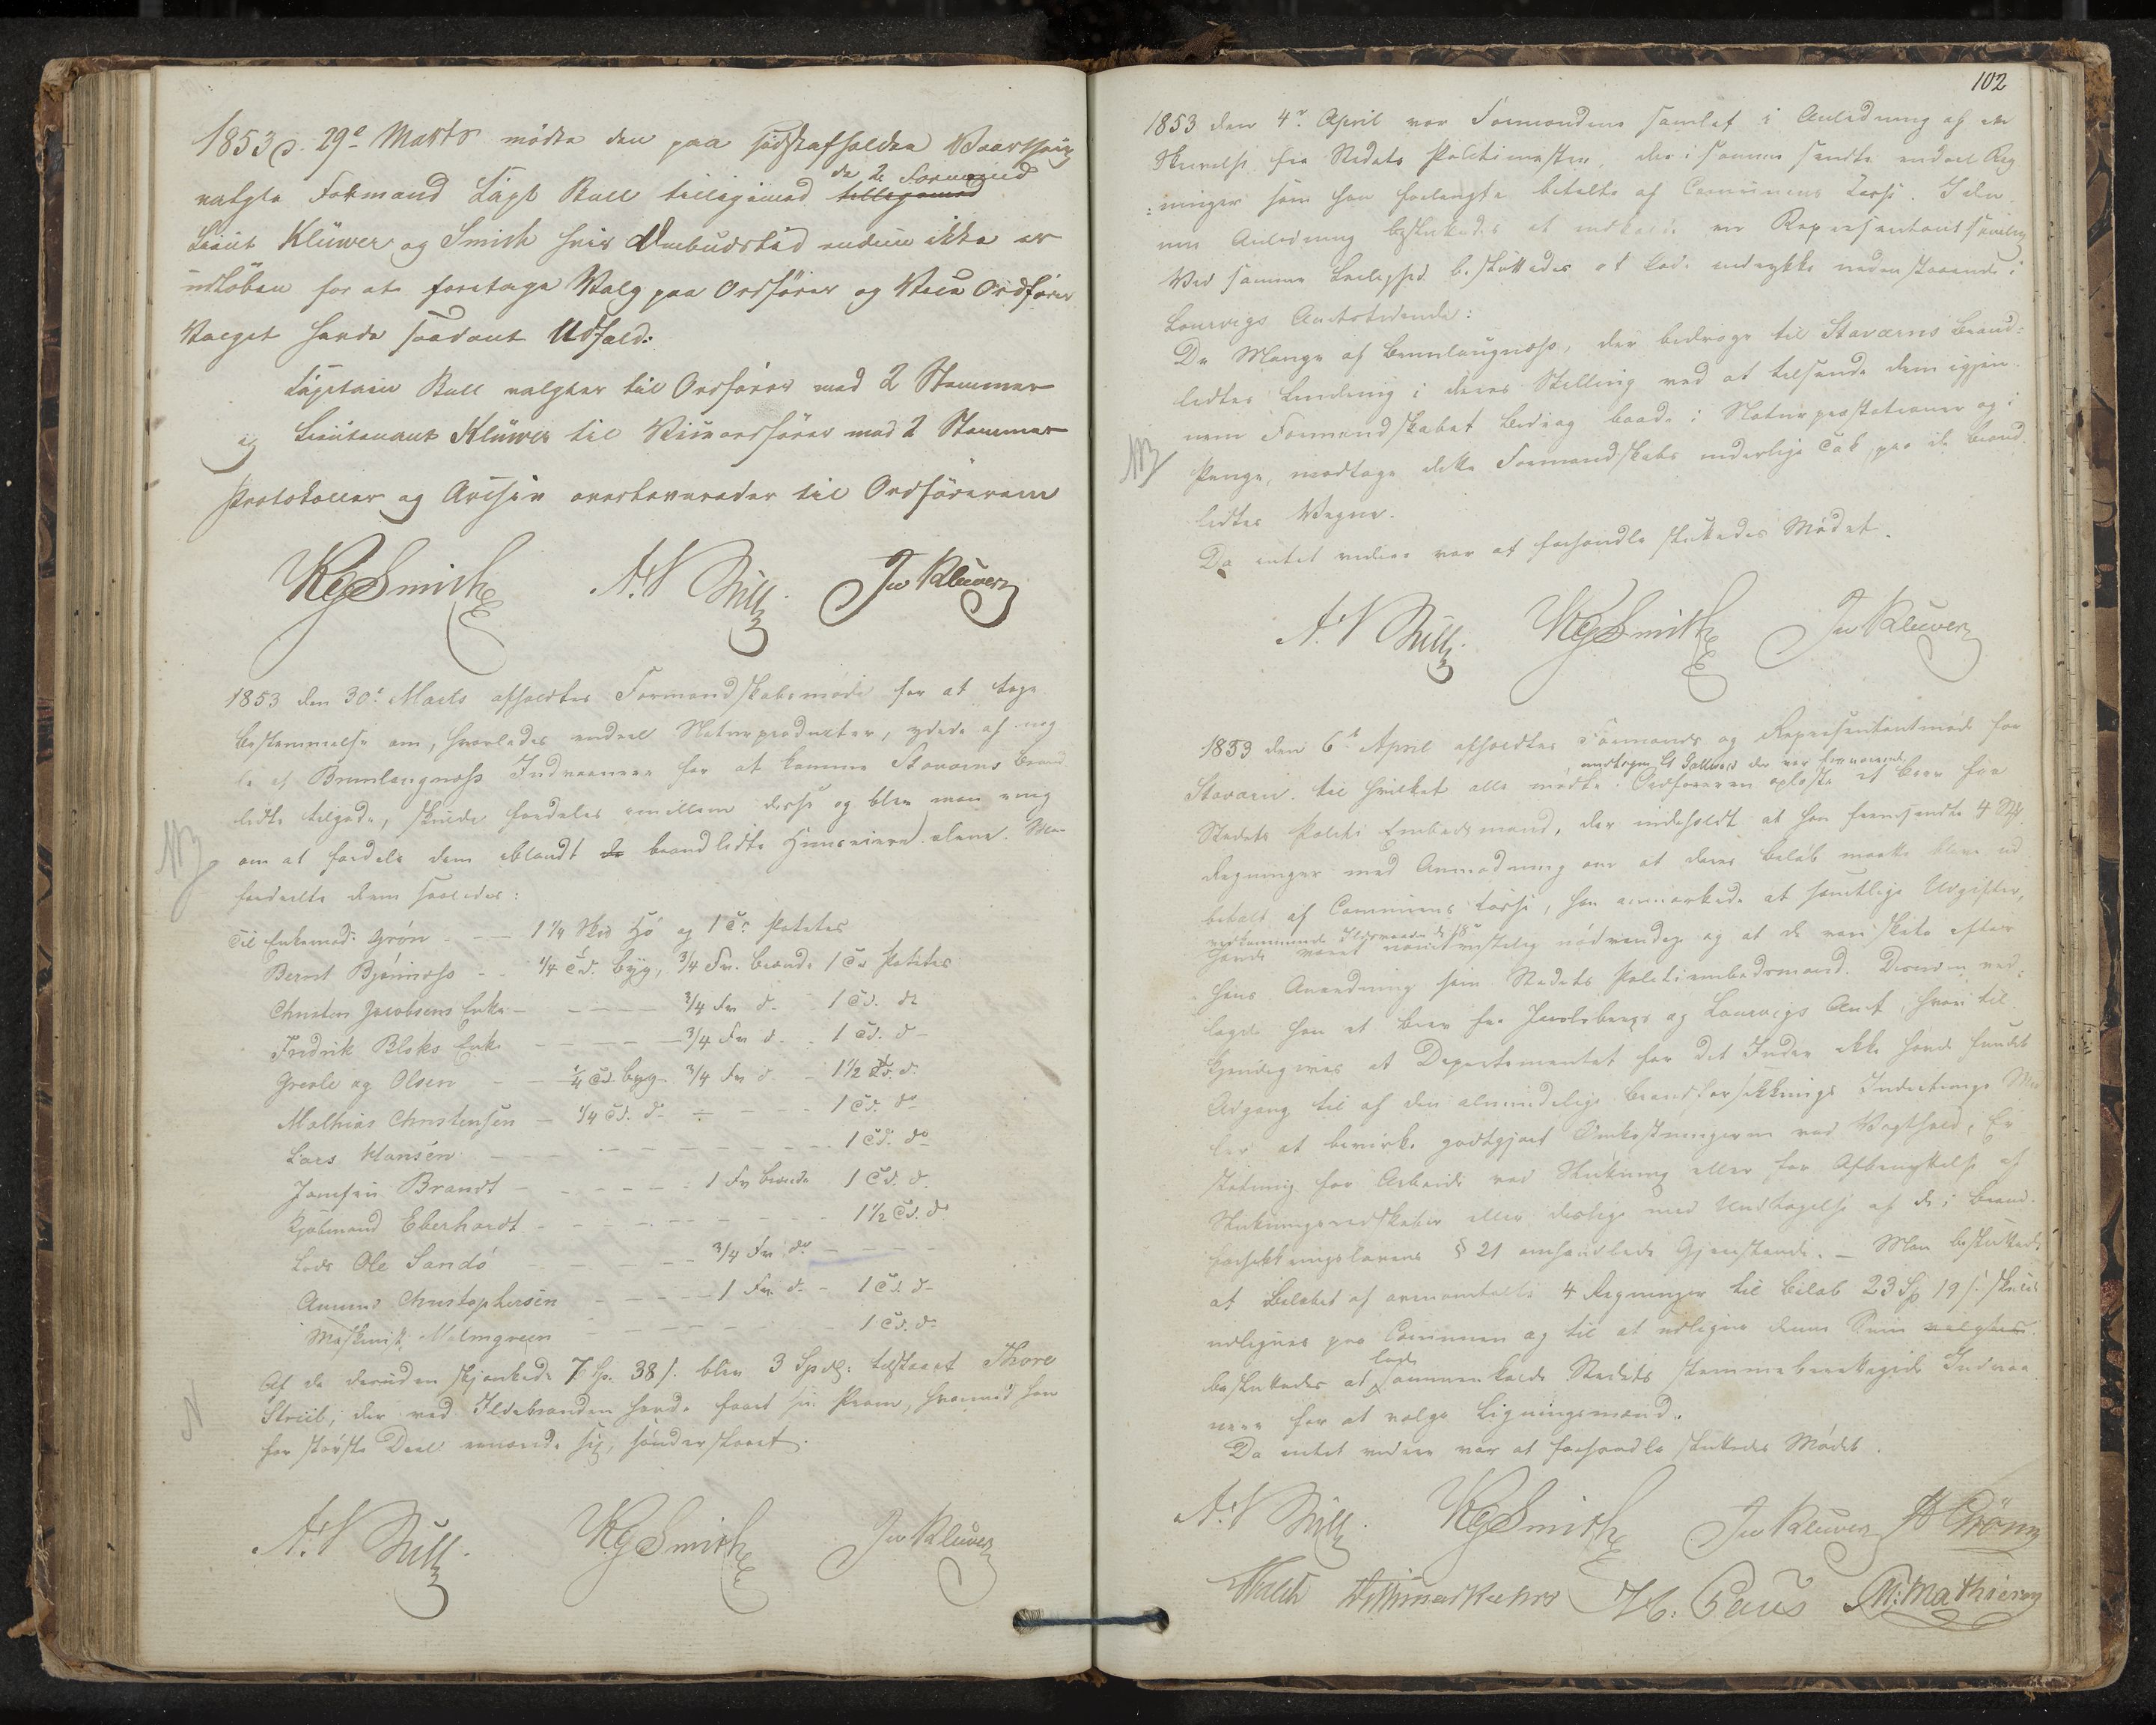 1853 d. 29de Marts mødte den paa sidstafholdte Vaarthing
valgte Formand Capt Bull tilligemed tilligemed de 2de Formænd
Lieut Klüwer og Smith hvis Ombudstid endnu ikke er
udløben for at foretage Valg paa Ordfører og Vice Ordfører
Valget havde saadant Udfald:
Capitain Bull valgtes til Ordfører med 2 Stemmer
og Lieutenant Klüwer til Viceordfører med 2 Stemmer
Protokoller og Archiv overleveredes til Ordføreren
Smith A. Bull Klüwer
1853 den 30te Marts afholdtes Formandskabsmøde for at tage
Bestemmelse om, hvorledes endeel Naturproducter, ydede af nog
le af Brunlaugnæss Indvaanere for at komme Staværns Brand
lidte tilgode, skulde fordeles imellem disse og blev man enig
om at fordele dem iblandt de brandlidte Huuseiere alene. Man
fordeelte dem saaledes:
Til Enkemad: Grøn - - 1 1/4 Skp Hø og 1 Td Poteter
Bernt Bjønnæss - - 1/4 Td. Byg, 3/4 Fv. Brænde 1 Td Poteter
Christen Jacobsens Enke - - 3/4 Fv d. 1 Td. do
Fredrik Bloks Enke - - 3/4 Fv d. 1 Td. d
Grevle og Olsen - - 1/4 Td Byg 3/4 Fv d. - 1 1/2 Td. d.
Mathias Christensen - 1/4 Td. d. - - 1 Td. do
Lars Hansen - - 1 Td. do
Jomfru Brandt - - 1 Fv Brænde 1 Td. d.
Kjøbmand Eberhardt - - 1 1/2 Td. d.
Lods Ole Sandø - - 3/4 Fv do - -
Christophersen - - 1 Fv. d. - 1 Td. d.
Maskinist Malmgreen - - 1 Td. d.
Af de desuden skjænkede 7 Sp. 38 s. blev 3 Spd: tilstaaet Thore
der ved Ildebranden havde faaet sin Pram, hvormed han
for største Deel ernærede sig, sønderskaaret.
A. Bull Smith Klüwer
102
1853 den 4de April var Formændene samlet i Anledning af en
Skrivelse fra Stedets Politimester, der i samme sendte endeel Reg
ninger som han forlangte betalte af Communens Casse. I den
ne Anledning besluttedes at indkalde en Repræsentantsamling
Ved samme Leilighed besluttedes at lade indrykke nedenstaaende i
Laurvigs Amtstidende:
De Mange af Brunlaugnæss, der bidroge til Staværns Brand-
lidtes Lindring i deres Stilling ved at tilsende dem igjen
nem Formandskabet Bidrag baade i Naturpræstationer og i
Penge, modtage dette Formandskabs inderlige Tak paa de Brand
lidtes Vegne.
Da intet videre var at forhandle sluttedes Mødet.
A. Bull Smith Klüwer
1853 den 6te April afholdtes Formands og Repræsentantmøde for
Staværn til hvilket alle mødte undtagen der var fraværende. Ordføreren oplæste et Brev fra
Stedets Politi Embedsmand, der indeholdt at han fremsendte 4 Stk.
Regninger med Anmodning om at deres Beløb maatte blive ud
betalt af Communens Casse, han anmærkede at samtlige Udgifter,
vedkommende Ildsvaaden
havde været nødvendige og at de vare skete efter
hans Anordning som Stedets Politiembedsmand. Desuden ved-
lagde han et Brev fra Jarlsbergs og Laurvigs Amt, hvori til
kjendegives at Departementet for det Indre ikke havde fundet
Adgang til af den almindelige Brandforsikkrings Indretnings Mid
ler at bevirke godtgjort Omkostningerne ved Vagthold, Er
statning for Arbeide ved Slukning eller for Afbenyttelse af
Slukningsredskaber eller deslige med Undtagelse af de i Brand-
forsikkringslovens § 21 omhandlede Gjenstande. - Man besluttede
at Beløbet af ovenomtalte 4 Regninger til Beløb 23 Sp 19 s. skulde
udlignes paa Communen og til at udligne denne Sum valgtes
besluttedes at lade sammenkalde Stedets stemmeberettigede Indvaa
nere for at vælge Ligningsmænd.
Da intet videre var at forhandle sluttedes Mødet.
A. Bull Smith Klüwer Grönn
H. Paus M. Mathiesen